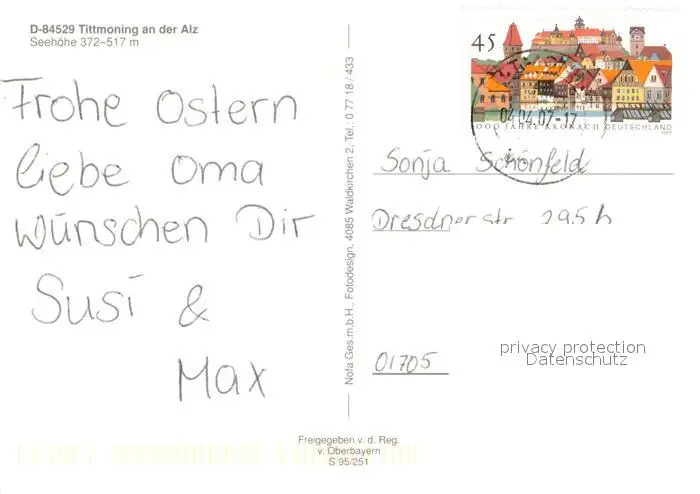 D-84529 Tittmoning an der Alz
Seehöhe 372–517 m
Frohe Ostern
liebe Oma
wünschen Dir
Susi &
Max
Nota Ges.m.b.H., Fotodesign, 4085 Waldkirchen 2, Tel.: 0 77 18 / 433
45
04.04.07-17
1000 JAHRE KRONACH DEUTSCHLAND
Sonja Schönfeld
Dresdner str
privacy protection
Datenschutz
01705
Freigegeben v. d. Reg.
v. Oberbayern
S 95/251